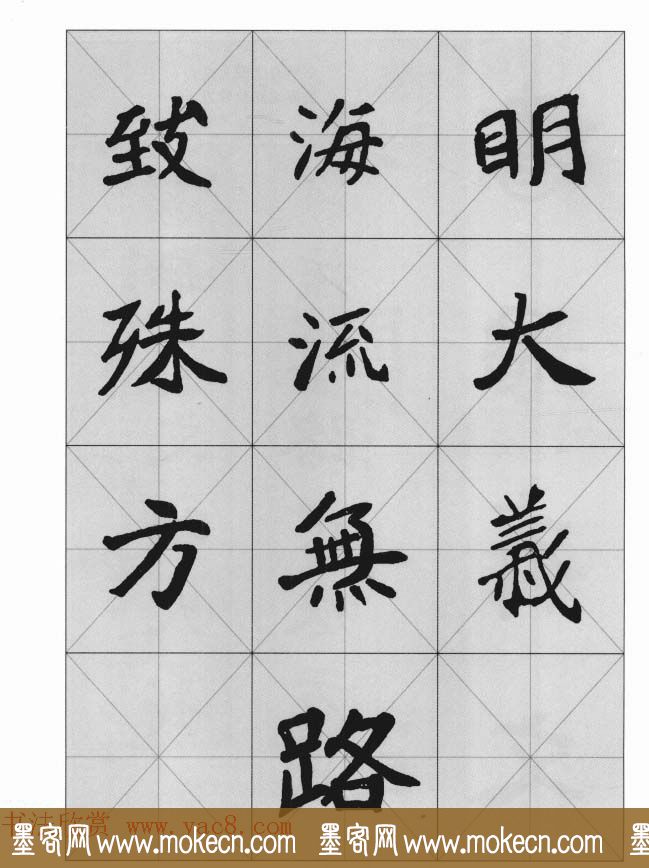 明大義
海流無路
致殊方
书法欣赏 www.yac8.com
墨客网 www.mokecn.com 墨客网 www.mokecn.com